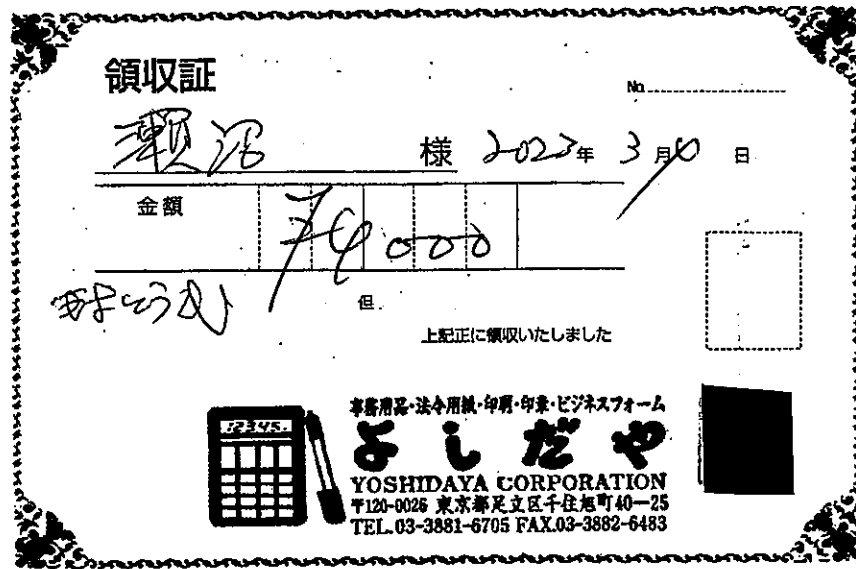 領収証
No.
瀬沼 様 2023年 3月10日
金額 ¥4000
但
上記正に領収いたしました
12345.
事務用品・法令用紙・印刷・印章・ビジネスフォーム
よしだや
YOSHIDAYA CORPORATION
〒120-0026 東京都足立区千住旭町40―25
TEL.03-3881-6705 FAX.03-3882-6483